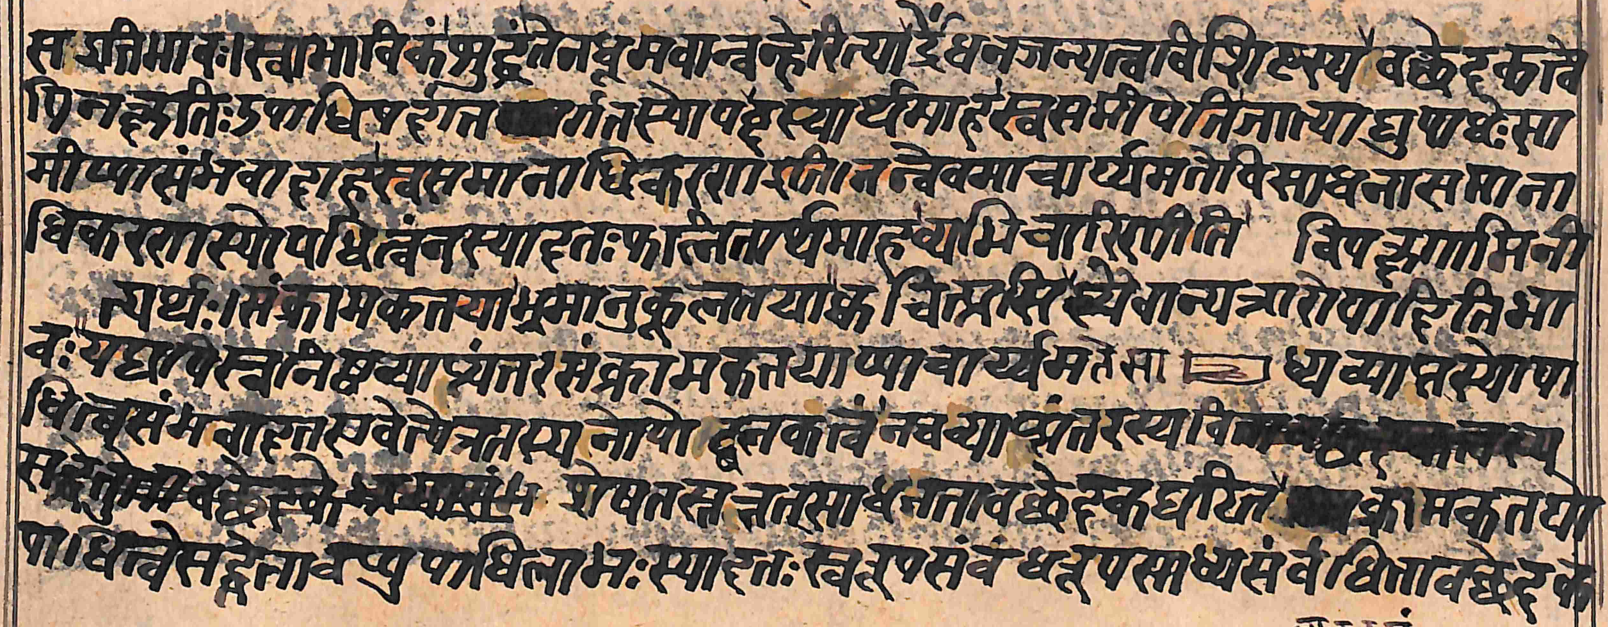 स प्रतिभावः। स्वाभाविकं शुद्धं तेन धूमवान्वन्हेरित्यार्द्रैंधनजन्यत्वविशिष्टस्यावछेदकत्वे
पि न क्षतिः उपाधिपदांत र्गतस्योपपदस्यार्थमाह स्वसमीपेति जात्याद्युपाधेः सा
मीप्यासंभवादाह स्वसमानाधिकरणा इति नन्वेवमाचार्य्यमतेपि साधनासमाना
धिकरणस्योपाधित्वं न स्यादतः फलितार्थमाह व्यभिचारिणीति विपक्षगामिनी
त्यर्थः। संक्रामकतया भ्रमानुकूलतया क्वचित्प्रसिद्धस्यैवान्यत्रारोपादिति भा
वः यद्यपि स्वनिष्ठव्याप्त्यंतरसंक्रामकतयाप्याचार्य्यमते सा ध्यव्याप्तस्योपा
धित्वसंभवादत एवेत्यत्र तस्य नोपोद्बलकत्वं नवव्याप्त्यंतरस्य वि
शेषतस्तत्तत्साधनतावछेदकघटित क्रामकतयो
पाधित्वे सद्धेतावप्युपाधिलाभः स्यादतः स्वरूपसंबंधरूपसाध्यसंबंधितावछेदक